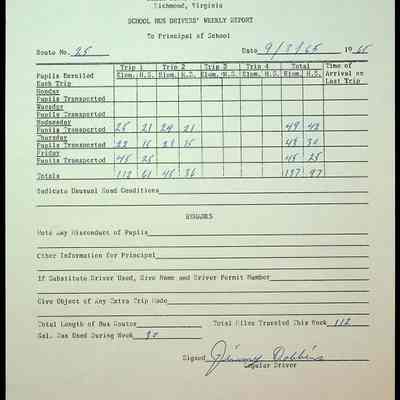 Richmond, Virginia
SCHOOL BUS DRIVERS' WEEKLY REPORT
To Principal of School
Route No. 25 Date 9/3/65 1965
Trip 1 Trip 2 Trip 3 Trip 4 Total Time of
Pupils Enrolled Elem. H.S. Elem. H.S. Elem. H.S. Elem. H.S. Elem. H.S. Arrival on
Each Trip Last Trip
Monday
Pupils Transported
Tuesday
Pupils Transported
Wednesday
Pupils Transported 25 21 24 21 49 42
Thursday
Pupils Transported 15 15 30
Friday
Pupils Transported 45 25 45 25
Totals 112 61 45 36 137 97
Indicate Unusual Road Conditions
REMARKS
Note Any Misconduct of Pupils
Other Information for Principal
If Substitute Driver Used, Give Name and Driver Permit Number
Give Object of Any Extra Trip Made
Total Length of Bus Routes Total Miles Traveled This Week 112
Gal. Gas Used During Week 20
Signed Jimmy Dobbins
Regular Driver